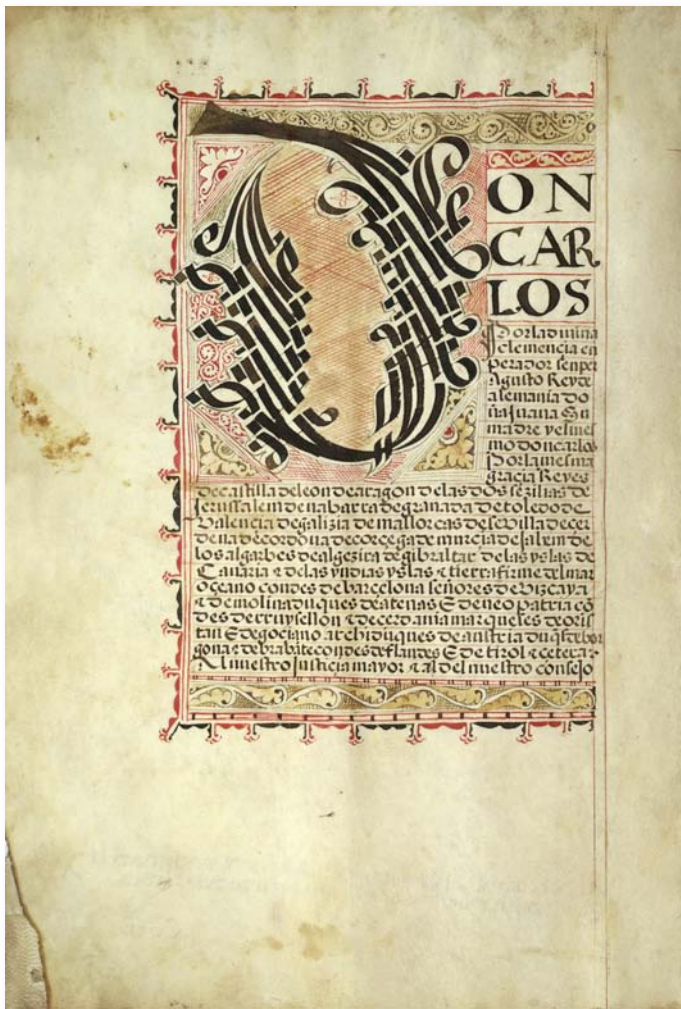 DON
CAR
LOS
Por la divina
clemencia en
perador senper
Agusto Rey de
alemania do
ña juana Su
madre y el mes
mo don carlos
Por la mesma
gracia Reyes
de castilla de leon de aragon de las dos sezilias de
Jerussalem de nabarra de granada de toledo de
Valencia de galizia de mallorcas de sevilla de cer
dena de cordova de corcega de murcia de Jahem de
los algarbes de algezira de gibraltar de las yslas de
Canaria & de las yndias yslas & tierra firme del mar
oçeano condes de barcelona señores de Vizcaya
& de molina duques de atenas E de neo patria cō
des de rruysellon & de cerdania marqueses de oris
tan E de gociano archiduques de austria duqs de bor
gona & de brabāte condes de flandes E de tirol & cetera
Al nuestro Justicia mayor & al del nuestro consejo